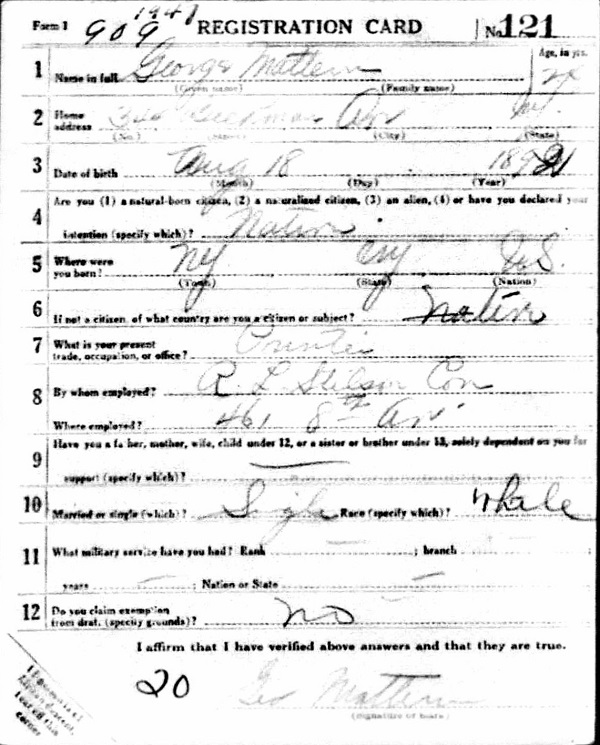 1941
Form 1 909 REGISTRATION CARD No. 121
1 Name in full George Mattern Age, in yrs.
(Given name) (Family name)
2 Home address Av NY.
(No.) (Street) (City) (State)
3 Date of birth Aug 18 189
(Month) (Day) (Year)
4 Are you (1) a natural-born citizen, (2) a naturalized citizen, (3) an alien, (4) or have you declared your
intention (specify which)? Native
5 Where were you born? NY U.S.
(Town) (State) (Nation)
6 If not a citizen, of what country are you a citizen or subject? Native
7 What is your present trade, occupation, or office? Printer
8 By whom employed? R. L. Stilson Con
Where employed? 461 8th Av.
9 Have you a father, mother, wife, child under 12, or a sister or brother under 12, solely dependent on you for
support (specify which)?
10 Married or single (which)? Single Race (specify which)? White
11 What military service have you had? Rank ; branch
years ; Nation or State
12 Do you claim exemption from draft (specify grounds)? No
I affirm that I have verified above answers and that they are true.
20 Geo Mattern
(Signature or mark)
corner